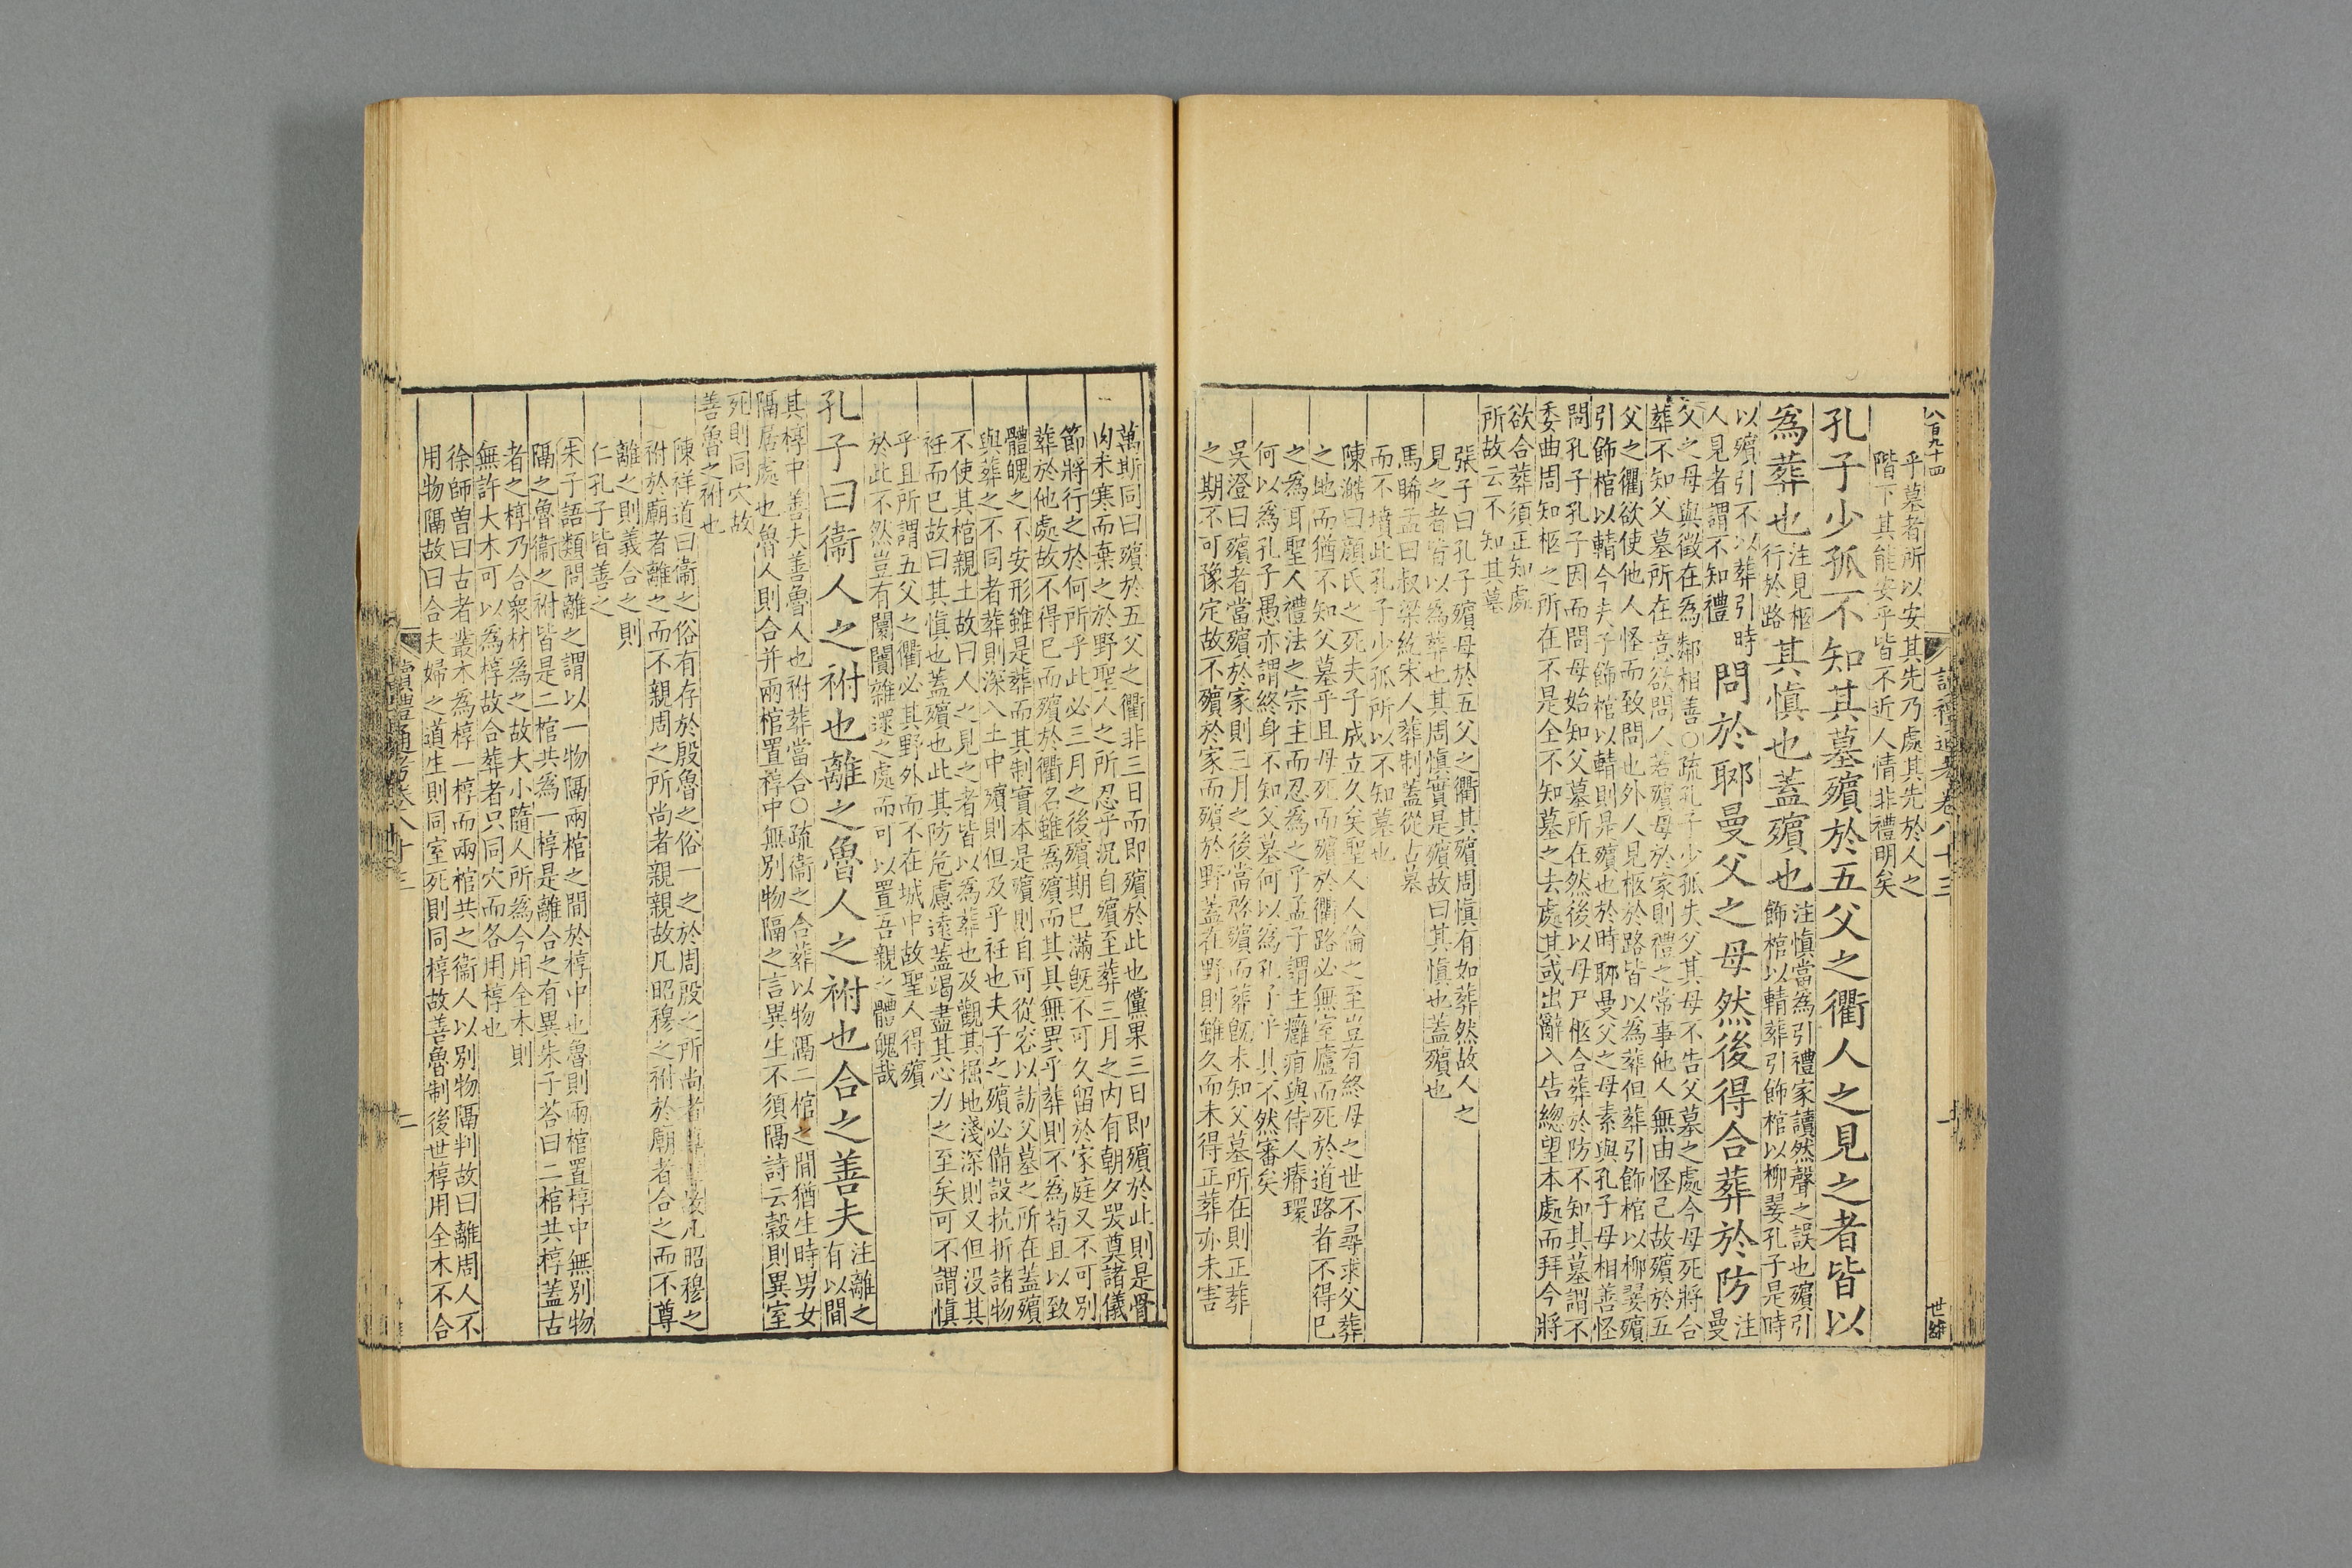 八百九十四
讀禮通考卷八十三
一
世綵
乎墓者所以安其先乃處其先於人之
階下其能安乎皆不近人情非禮明矣
孔子少孤不知其墓殯於五父之衢人之見之者皆以
爲葬也
注見柩
行於路
其慎也蓋殯也
注慎當爲引禮家讀然聲之誤也殯引
飾棺以輤葬引飾棺以柳翣孔子是時
以殯引不以葬引時
人見者謂不知禮
問於郰曼父之母然後得合葬於防
注
曼
父之母與徵在爲鄰相善○疏孔子少孤失父其母不告父墓之處今母死將合
葬不知父墓所在意欲問人若殯母於家則禮之常事他人無由怪己故殯於五
父之衢欲使他人怪而致問也外人見柩於路皆以爲葬但葬引飾棺以柳翣殯
引飾棺以輤今夫子飾棺以輤則是殯也於時郰曼父之母素與孔子母相善怪
問孔子孔子因而問母始知父墓所在然後以母尸柩合葬於防不知其墓謂不
委曲周知柩之所在不是全不知墓之去處其或出辭入告總望本處而拜今將
欲合葬須正知處
所故云不知其墓
張子曰孔子殯母於五父之衢其殯周慎有如葬然故人之
見之者皆以爲葬也其周慎實是殯故曰其慎也蓋殯也
馬睎孟曰叔梁紇宋人葬制蓋從古墓
而不墳此孔子少孤所以不知墓也
陳澔曰顏氏之死夫子成立久矣聖人人倫之至豈有終母之世不尋求父葬
之地而猶不知父墓乎且母死而殯於衢路必無室廬而死於道路者不得已
之爲耳聖人禮法之宗主而忍爲之乎孟子謂主癰疽與侍人瘠環
何以爲孔子愚亦謂終身不知父墓何以爲孔子乎其不然審矣
吳澄曰殯者當殯於家則三月之後當啓殯而葬旣未知父墓所在則正葬
之期不可豫定故不殯於家而殯於野蓋在野則雖久而未得正葬亦未害
萬斯同曰殯於五父之衢非三日而即殯於此也儻果三日即殯於此則是骨
肉未寒而棄之於野聖人之所忍乎況自殯至葬三月之内有朝夕哭奠諸儀
節將行之於何所乎此必三月之後殯期已滿旣不可久留於家庭又不可別
葬於他處故不得已而殯於衢名雖爲殯而其具無異乎葬則不爲苟且以致
體魄之不安形雖是葬而其制實本是殯則自可從容以訪父墓之所在蓋殯
與葬之不同者葬則深入土中殯則但及乎衽也夫子之殯必備設抗折諸物
不使其棺親土故曰人之見之者皆以爲葬也及觀其掘地淺深則又但没其
衽而已故曰其慎也蓋殯也此其防危慮遠蓋竭盡其心力之至矣可不謂慎
乎且所謂五父之衢必其野外而不在城中故聖人得殯
於此不然豈有闤闠雜遝之處而可以置吾親之體魄哉
孔子曰衞人之祔也離之魯人之祔也合之善夫
注離之
有以間
其椁中善夫善魯人也祔葬當合○疏衞之合葬以物隔二棺之間猶生時男女
隔居處也魯人則合并兩棺置椁中無別物隔之言異生不須隔詩云穀則異室
死則同穴故
善魯之祔也
陳祥道曰衞之俗有存於殷魯之俗一之於周殷之所尚者尊尊故凡昭穆之
祔於廟者離之而不親周之所尚者親親故凡昭穆之祔於廟者合之而不尊
離之則義合之則
仁孔子皆善之
朱子語類問離之謂以一物隔兩棺之間於椁中也魯則兩棺置椁中無別物
隔之魯衞之祔皆是二棺共爲一椁是離合之有異朱子荅曰二棺共椁蓋古
者之椁乃合衆材爲之故大小隨人所爲今用全木則
無許大木可以爲椁故合葬者只同穴而各用椁也
徐師曾曰古者叢木爲椁一椁而兩棺共之衞人以別物隔判故曰離周人不
用物隔故曰合夫婦之道生則同室死則同椁故善魯制後世椁用全木不合
讀禮通考卷八十三
二